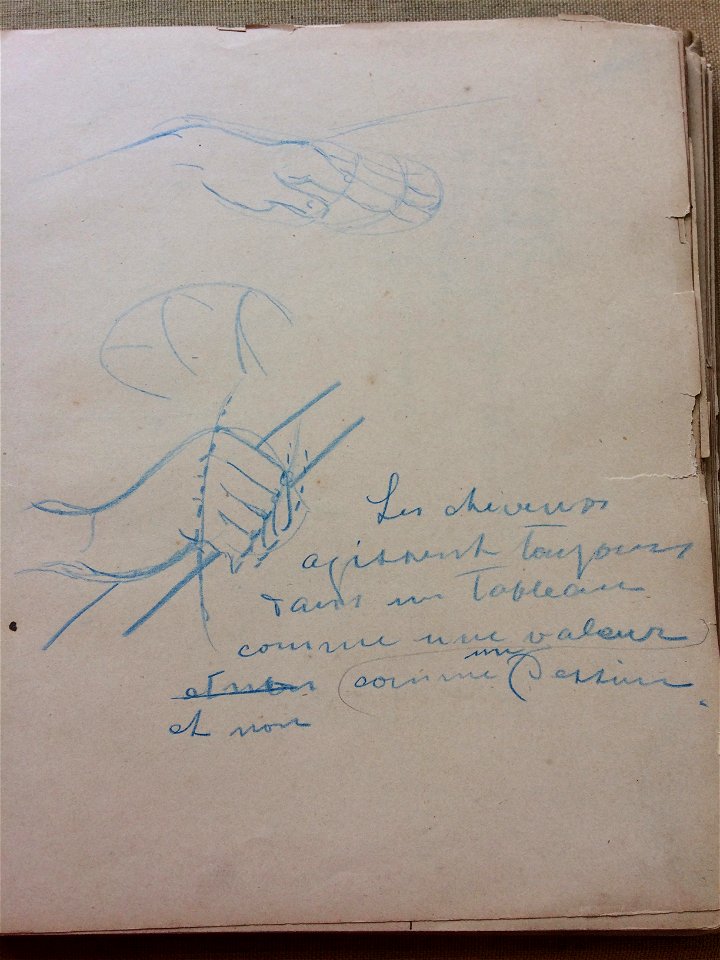 Les cheveux
agissent toujours
dans un Tableau
comme une valeur
et non comme un Dessin.
et non